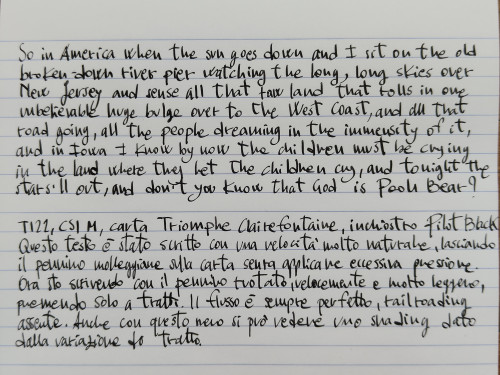 So in America when the sun goes down and I sit on the old
broken-down river pier watching the long, long skies over
New Jersey and sense all that raw land that rolls in one
unbelievable huge bulge over to the West Coast, and all that
road going, all the people dreaming in the immensity of it,
and in Iowa I know by now the children must be crying
in the land where they let the children cry, and tonight the
stars'll out, and don't you know that God is Pooh Bear?
TI22, CSI M, carta Triomphe Clairefontaine, inchiostro Pilot Black
Questo testo è stato scritto con una velocità molto naturale, lasciando
il pennino molleggiare sulla carta senza applicare eccessiva pressione.
Ora sto scrivendo con il pennino ruotato, velocemente e molto leggero,
premendo solo a tratti. Il flusso è sempre perfetto, railroading
assente. Anche con questo nero si può vedere uno shading dato
dalla variazione di tratto.